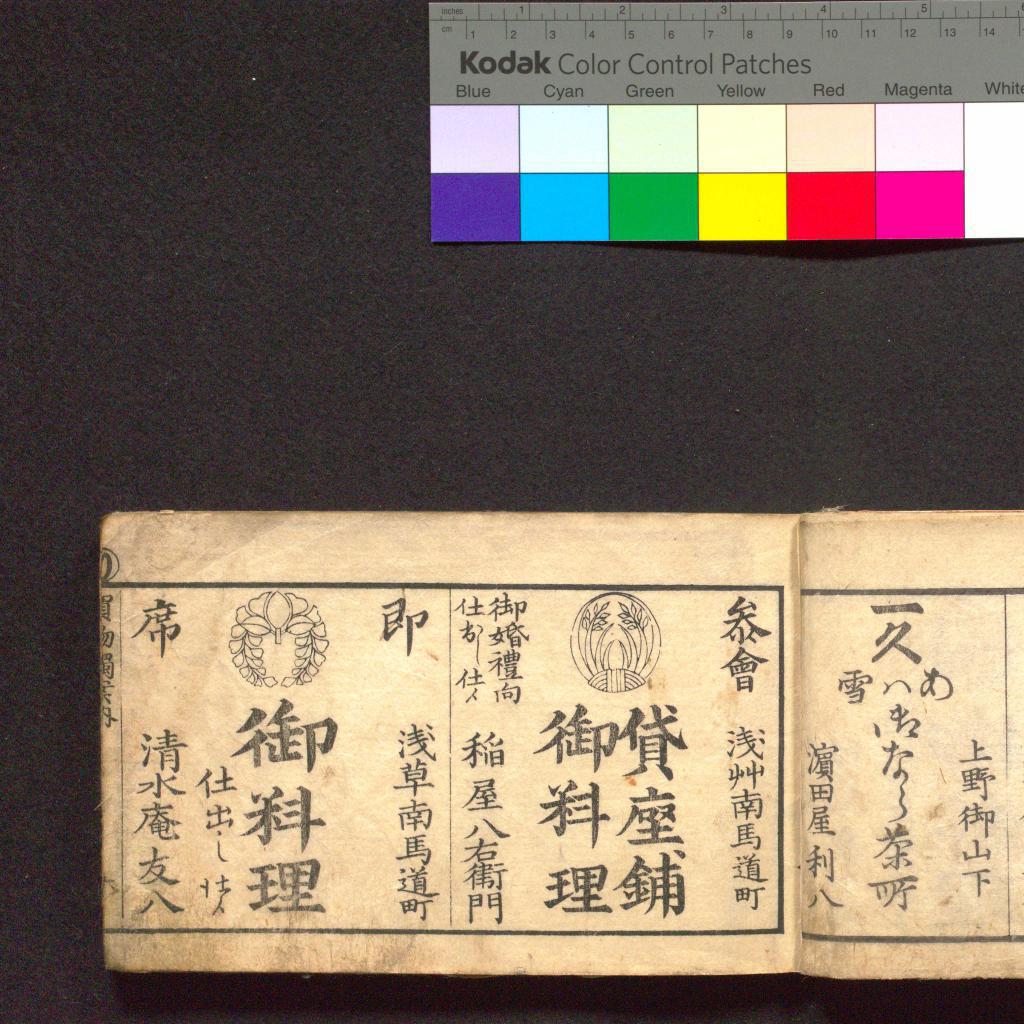 inches 1 2 3 4 5
cm 1 2 3 4 5 6 7 8 9 10 11 12 13 14
Kodak Color Control Patches
Blue Cyan Green Yellow Red Magenta White
上野御山下
一久
雪
茶所
濱田屋利八
参會
浅艸南馬道町
貸座鋪
御料理
御婚禮向
稲屋八右衛門
即
浅草南馬道町
御料理
仕出し
席
清水庵友八